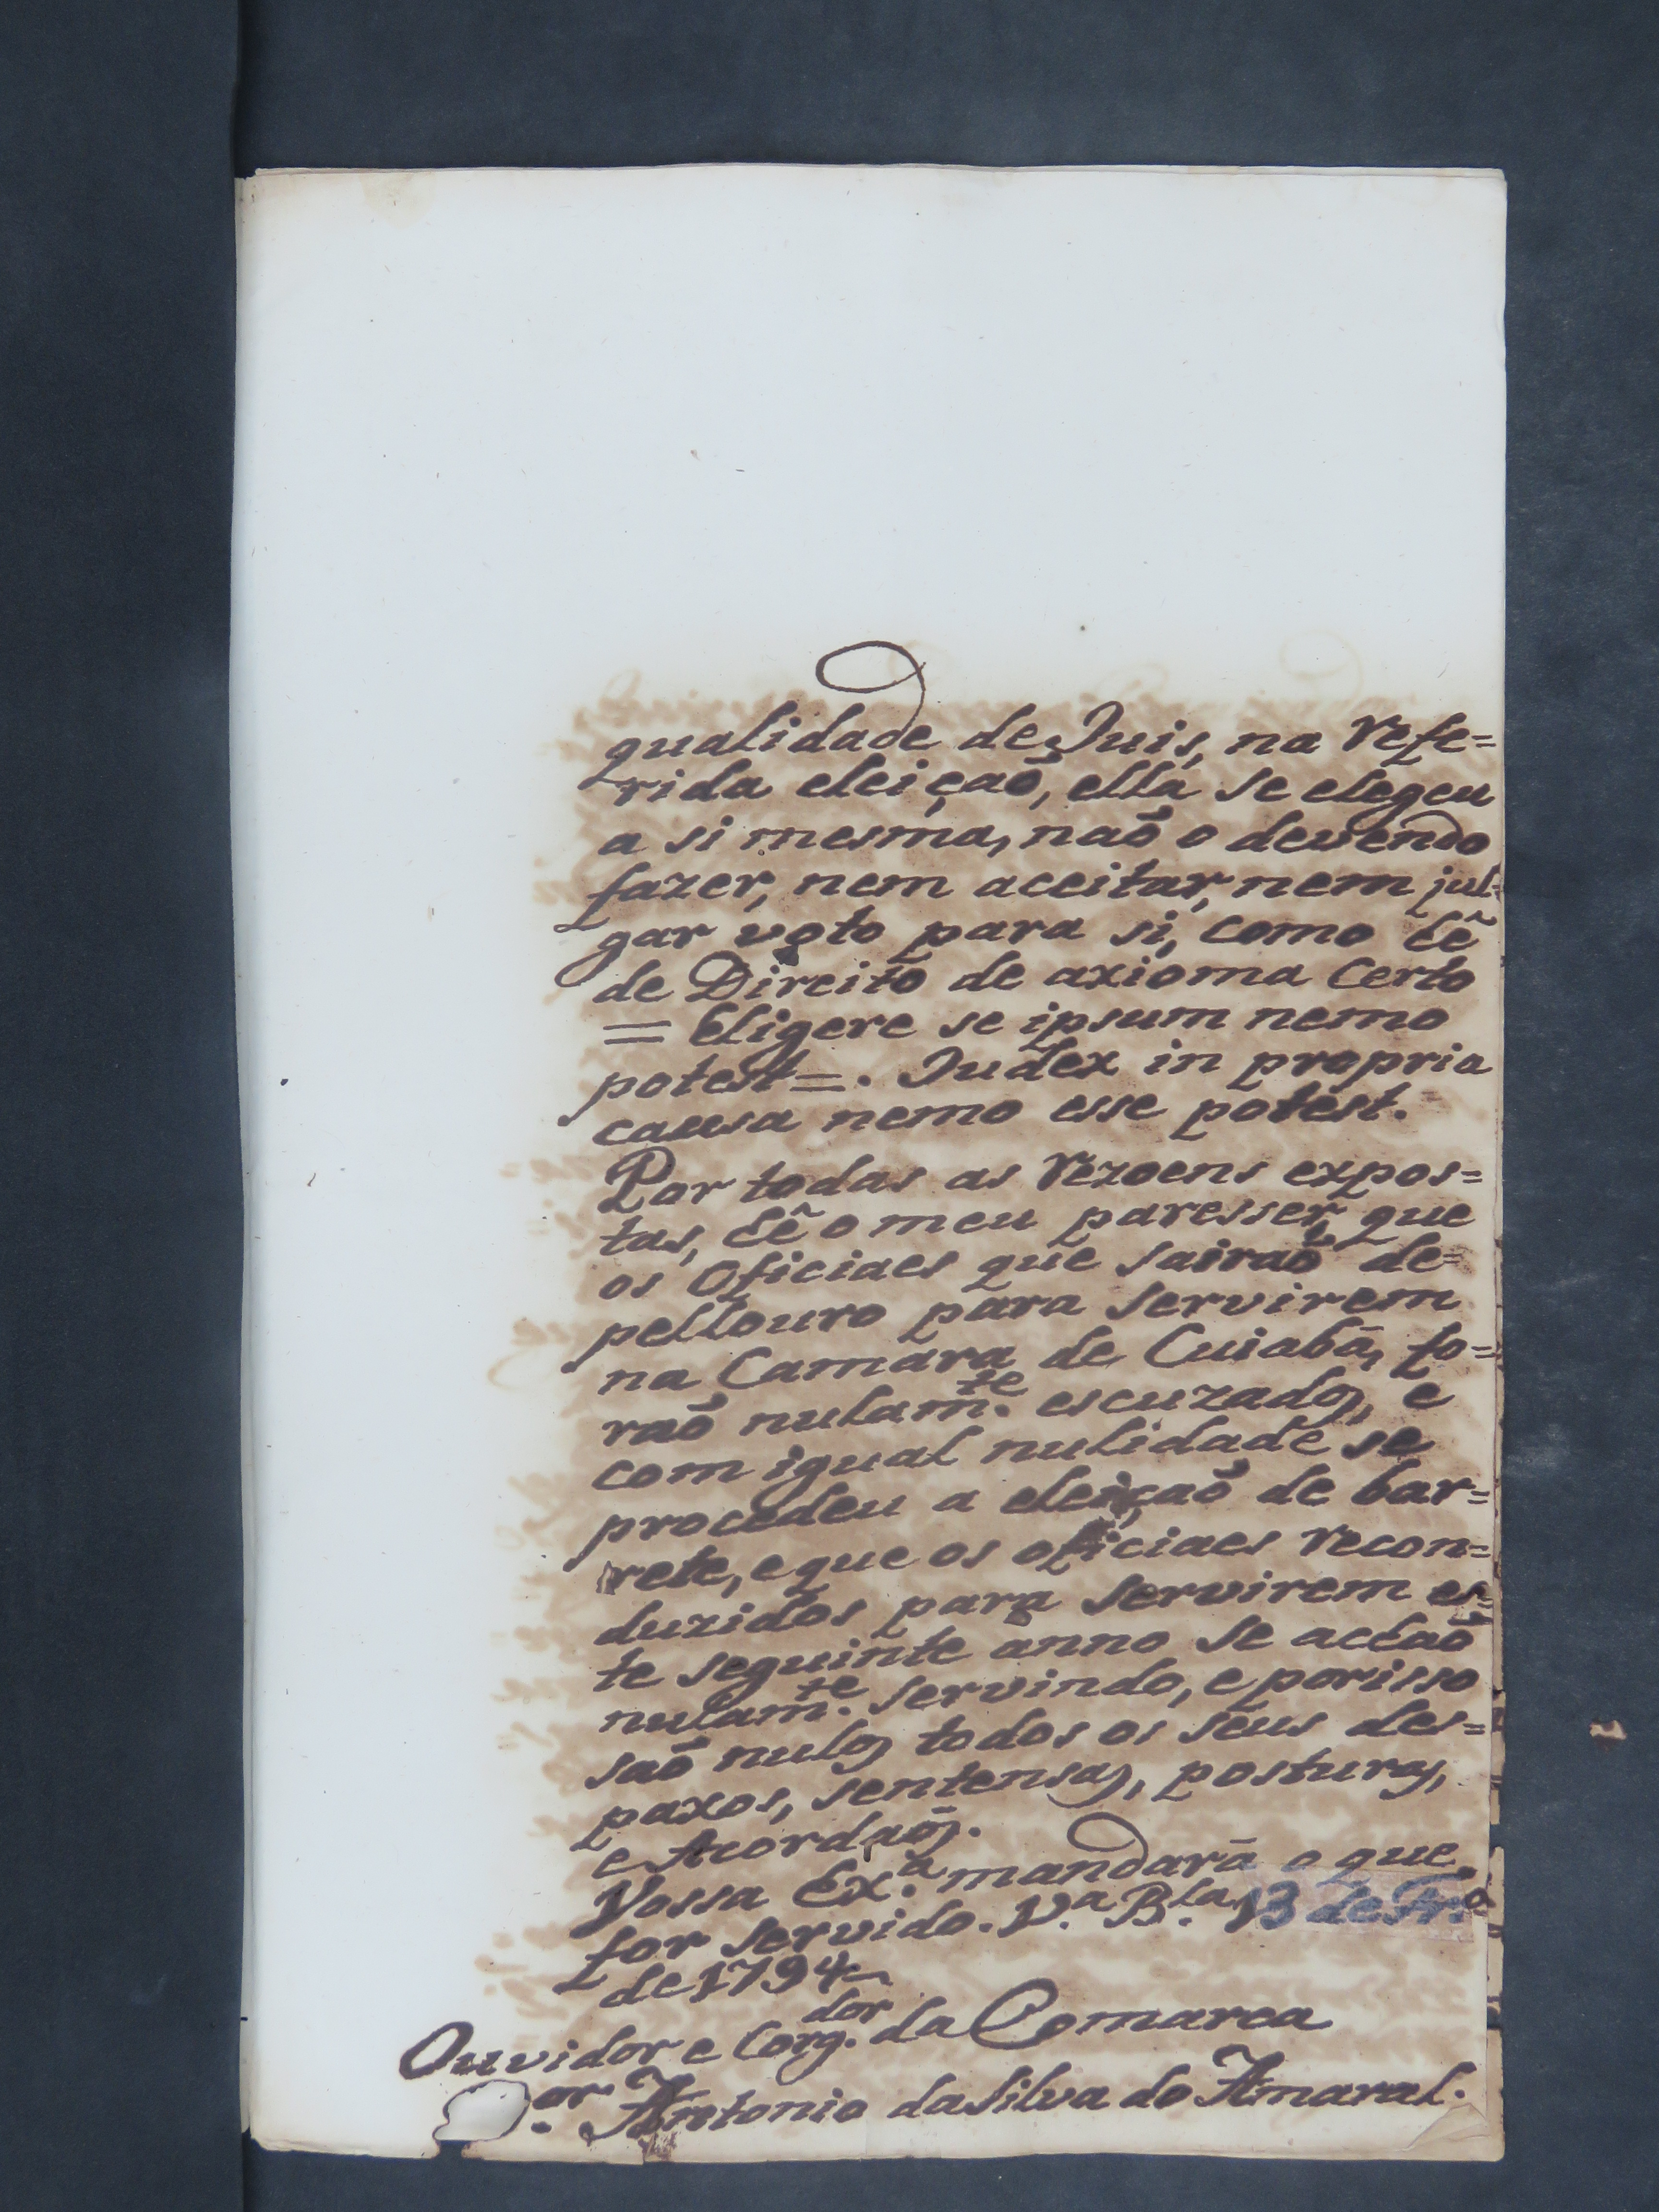 qualidade de Juis, na refe=
rida eleiçaõ, ella se elegeu
a si mesma, naõ o devendo
fazer, nem aceitar, nem jul=
gar voto para si, como hê
de Direito de axioma certo
= Eligere se ipsum nemo
potest=. Judex in propria
causa nemo esse potest.
Por todas as rezoens expos=
tas, hê o meu paresser, que
os Oficiaes que sairaõ de=
pellouro para servirem
na Camara de Cuiabá, fo=
raõ nulam.te escuzados, e
com igual nulidade se
procedeu a eleiçaõ de bar=
rete, e que os oficiaes recon=
duzidos para servirem es=
te seguinte anno se achaõ
nulam.te servindo, e porisso
saõ nulos todos os seus des=
paxos, sentensas, posturas,
e Acordaõs.
Vossa Ex.a mandará o que
for servido. V.a B.la 13 de Fr.o
de 1794
Ouvidor e Corg.dor da Comarca
.or Antonio da Silva do Amaral.